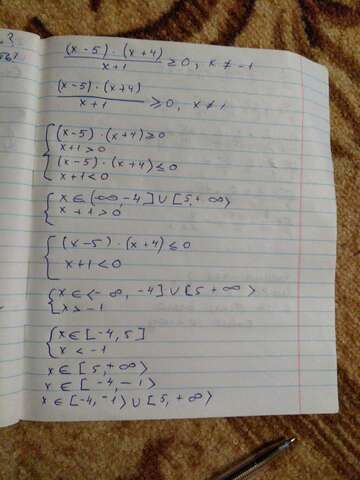 (x-5)·(x+4)/x+1 ≥0, x≠-1
(x-5)·(x+4)/x+1 ≥0, x≠1
{(x-5)·(x+4)≥0
x+1>0
{(x-5)·(x+4)≤0
x+1<0
{x∈(-∞,-4]∪[5,+∞)
x+1>0
{(x-5)·(x+4)≤0
x+1<0
{x∈<-∞,-4]∪[5+∞>
x>-1
{x∈[-4,5]
x<-1
x∈[5,+∞>
x∈[-4,-1>
x∈[-4,-1)∪[5,+∞)